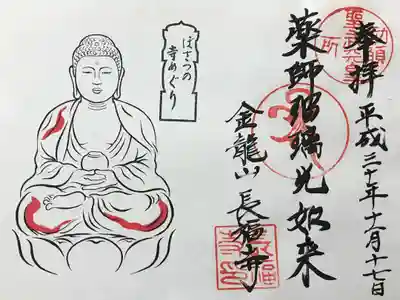 奉拝
平成三十年十一月十七日
勅願
聖武天皇
所
薬師瑠璃光如来
金龍山
長福寺
ぼさつの
寺めぐり